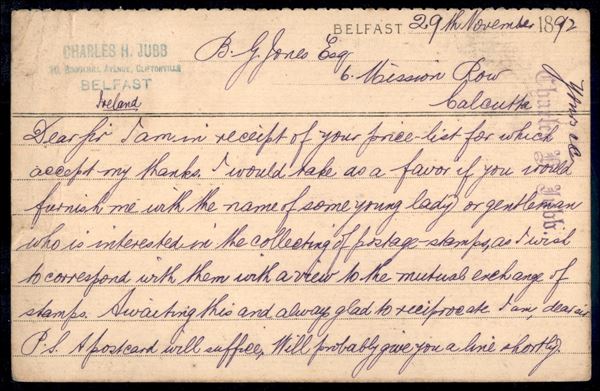 BELFAST 29th November 1892
CHARLES H. JUBB
AVENUE, CLIFTONVILLE
BELFAST
Ireland
B. G. Jones Esq
6. Mission Row
Calcutta
Dear Sir I am in receipt of your price-list for which
accept my thanks. I would take as a favor if you would
furnish me with the name of some young lady or gentleman
who is interested in the collecting of postage-stamps, as I wish
to correspond with them with a view to the mutual exchange of
stamps. Awaiting this and always glad to reciprocate I am, dear sir
P.S. A postcard will suffice, Will probably give you a line shortly.
Yours &c
Charles H. Jubb